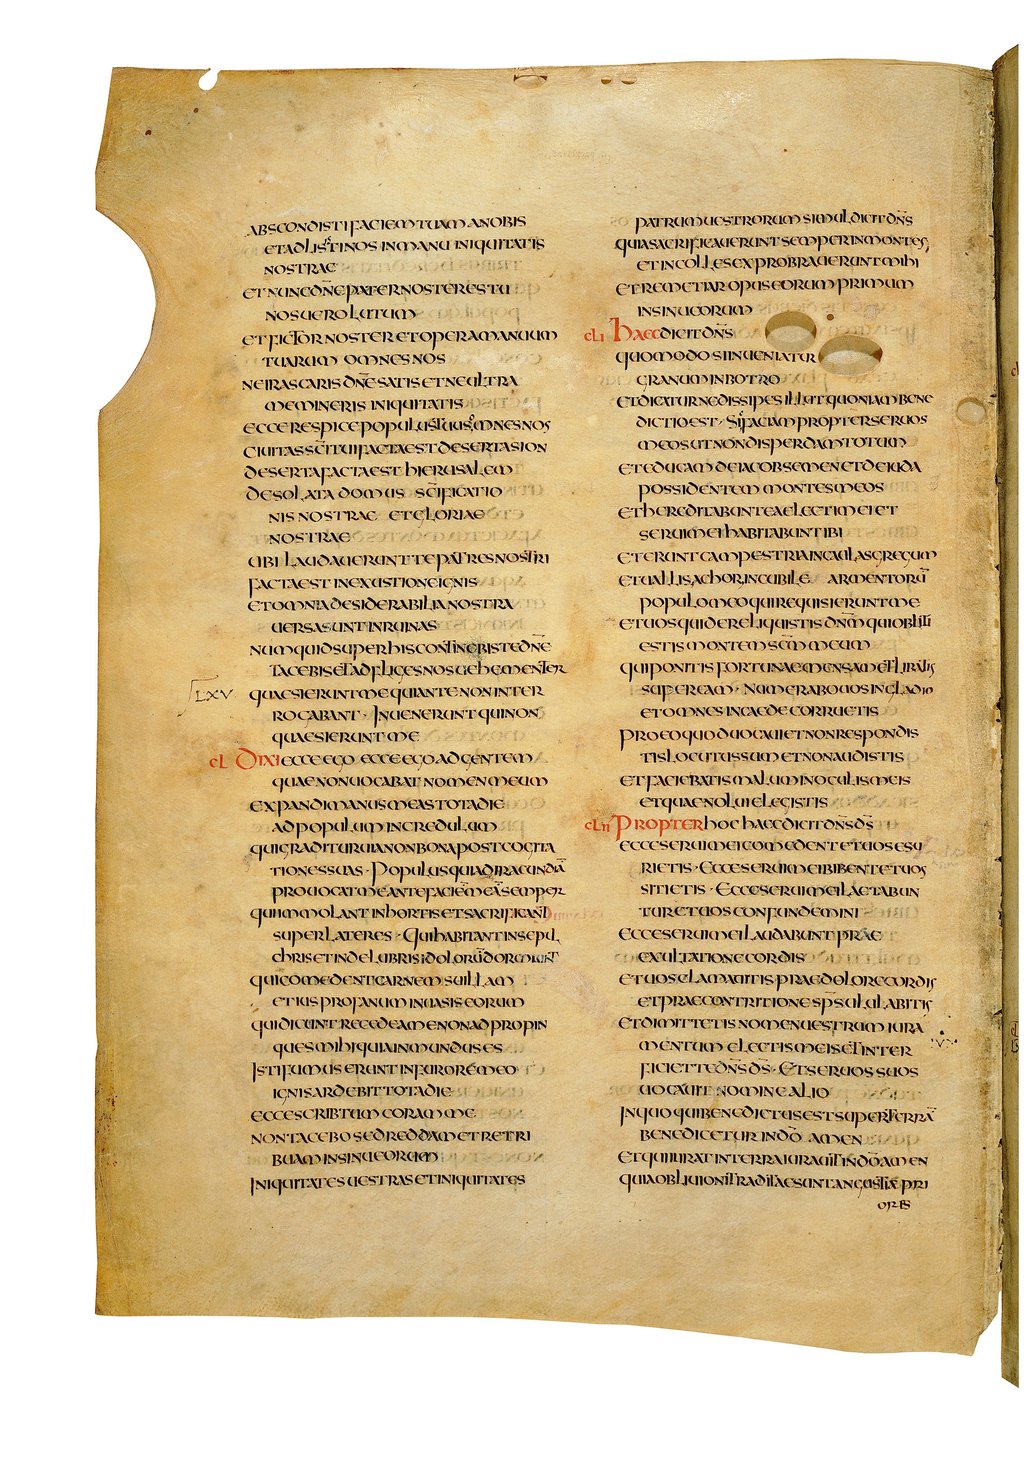 ABSCONDISTI FACIEM TUAM A NOBIS
ET ADLISISTI NOS IN MANU INIQUITATIS
NOSTRAE
ET NUNC DN̄E PATER NOSTER ES TU
NOS UERO LUTUM
ET FICTOR NOSTER ET OPERA MANUUM
TUARUM OMNES NOS
NE IRASCARIS DN̄E SATIS ET NE ULTRA
MEMINERIS INIQUITATIS
ECCE RESPICE POPULUS TUUS OMNES NOS
CIUITAS SC̄I TUI FACTA EST DESERTA SION
DESERTA FACTA EST HIERUSALEM
DESOLATA DOMUS SC̄IFICATIO
NIS NOSTRAE ET GLORIAE
NOSTRAE
UBI LAUDAUERUNT TE PATRES NOSTRI
FACTA EST IN EXUSTIONE IGNIS
ET OMNIA DESIDERABILIA NOSTRA
UERSA SUNT IN RUINAS
NUMQUID SUPER HIS CONTINEBIS TE DN̄E
TACEBIS ET ADFLIGES NOS UEHEMENTER
LXV QUAESIERUNT ME QUI ANTE NON INTER
ROGABANT · INUENERUNT QUI NON
QUAESIERUNT ME
CL DIXI ECCE EGO ECCE EGO AD GENTEM
QUAE NON UOCABAT NOMEN MEUM
EXPANDI MANUS MEAS TOTA DIE
AD POPULUM INCREDULUM
QUI GRADITUR UIA NON BONA POST COGITA
TIONES SUAS · POPULUS QUI AD IRACUNDIĀ
PROUOCAT ME ANTE FACIEM MEĀ SEMPER
QUI IMMOLANT IN HORTIS ET SACRIFICANT
SUPER LATERES · QUI HABITANT IN SEPUL
CHRIS ET IN DELUBRIS IDOLORŪ DORMIUNT
QUI COMEDENT CARNEM SUILLAM
ET IUS PROFANUM IN UASIS EORUM
QUI DICUNT RECEDE A ME NON ADPROPIN
QUES MIHI QUIA INMUNDUS ES
ISTI FUMUS ERUNT IN FURORE MEO
IGNIS ARDEBIT TOTA DIE
ECCE SCRIBTUM CORAM ME
NON TACEBO SED REDDAM ET RETRI
BUAM IN SINU EORUM
INIQUITATES UESTRAS ET INIQUITATES
PATRUM UESTRORUM SIMUL DICIT DN̄S
QUIA SACRIFICAUERUNT SEMPER IN MONTES
ET IN COLLES EXPROBRAUERUNT MIHI
ET REMETIAR OPUS EORUM PRIMUM
IN SINU EORUM
CLI HAEC DICIT DN̄S
QUOMODO SI INUENIATUR
GRANUM IN BOTRO
ET DICATUR NE DISSIPES ILLUT QUONIAM BENE
DICTIO EST · SIC FACIAM PROPTER SERUOS
MEOS UT NON DISPERDAM TOTUM
ET EDUCAM DE IACOB SEMEN ET DE IUDA
POSSIDENTEM MONTES MEOS
ET HEREDITABUNT EA ELECTI MEI ET
SERUI MEI HABITABUNT IBI
ET ERUNT CAMPESTRIA IN CAULAS GREGUM
ET UALLIS ACHOR IN CUBILE ARMENTORŪ
POPULO MEO QUI REQUISIERUNT ME
ET UOS QUI DERELIQUISTIS DN̄M QUI OBLITI
ESTIS MONTEM SC̄M MEUM
QUI PONITIS FORTUNAE MENSAM ET LIBATIS
SUPER EAM · NUMERABO UOS IN GLADIO
ET OMNES IN CAEDE CORRUETIS
PRO EO QUOD UOCAUI ET NON RESPONDIS
TIS LOCUTUS SUM ET NON AUDISTIS
ET FACIEBATIS MALUM IN OCULIS MEIS
ET QUAE NOLUI ELEGISTIS
CLII PROPTER HOC HAEC DICIT DN̄S D̄S
ECCE SERUI MEI COMEDENT ET UOS ESU
RIETIS · ECCE SERUI MEI BIBENT ET UOS
SITIETIS · ECCE SERUI MEI LAETABUN
TUR ET UOS CONFUNDEMINI
ECCE SERUI MEI LAUDABUNT PRAE
EXULTATIONE CORDIS
ET UOS CLAMATITIS PRAE DOLORE CORDIS
ET PRAE CONTRITIONE SP̄S ULULABITIS
ET DIMITTETIS NOMEN UESTRUM IURA
MENTUM ELECTIS MEIS ET INTER
FICIET TE DN̄S D̄S · ET SERUOS SUOS
UOCAUIT NOMINE ALIO
IN QUO QUI BENEDICTUS EST SUPER TERRĀ
BENEDICETUR IN DŌ AMEN
ET QUI IURAT IN TERRA IURAUIT IN DŌ AMEN
QUIA OBLIUIONI TRADITAE SUNT ANGUSTIAE PRI
ORES